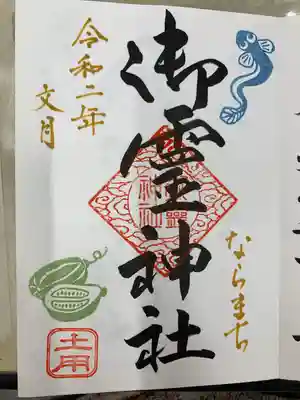 ならまち
御霊神社
令和二年
文月
土用